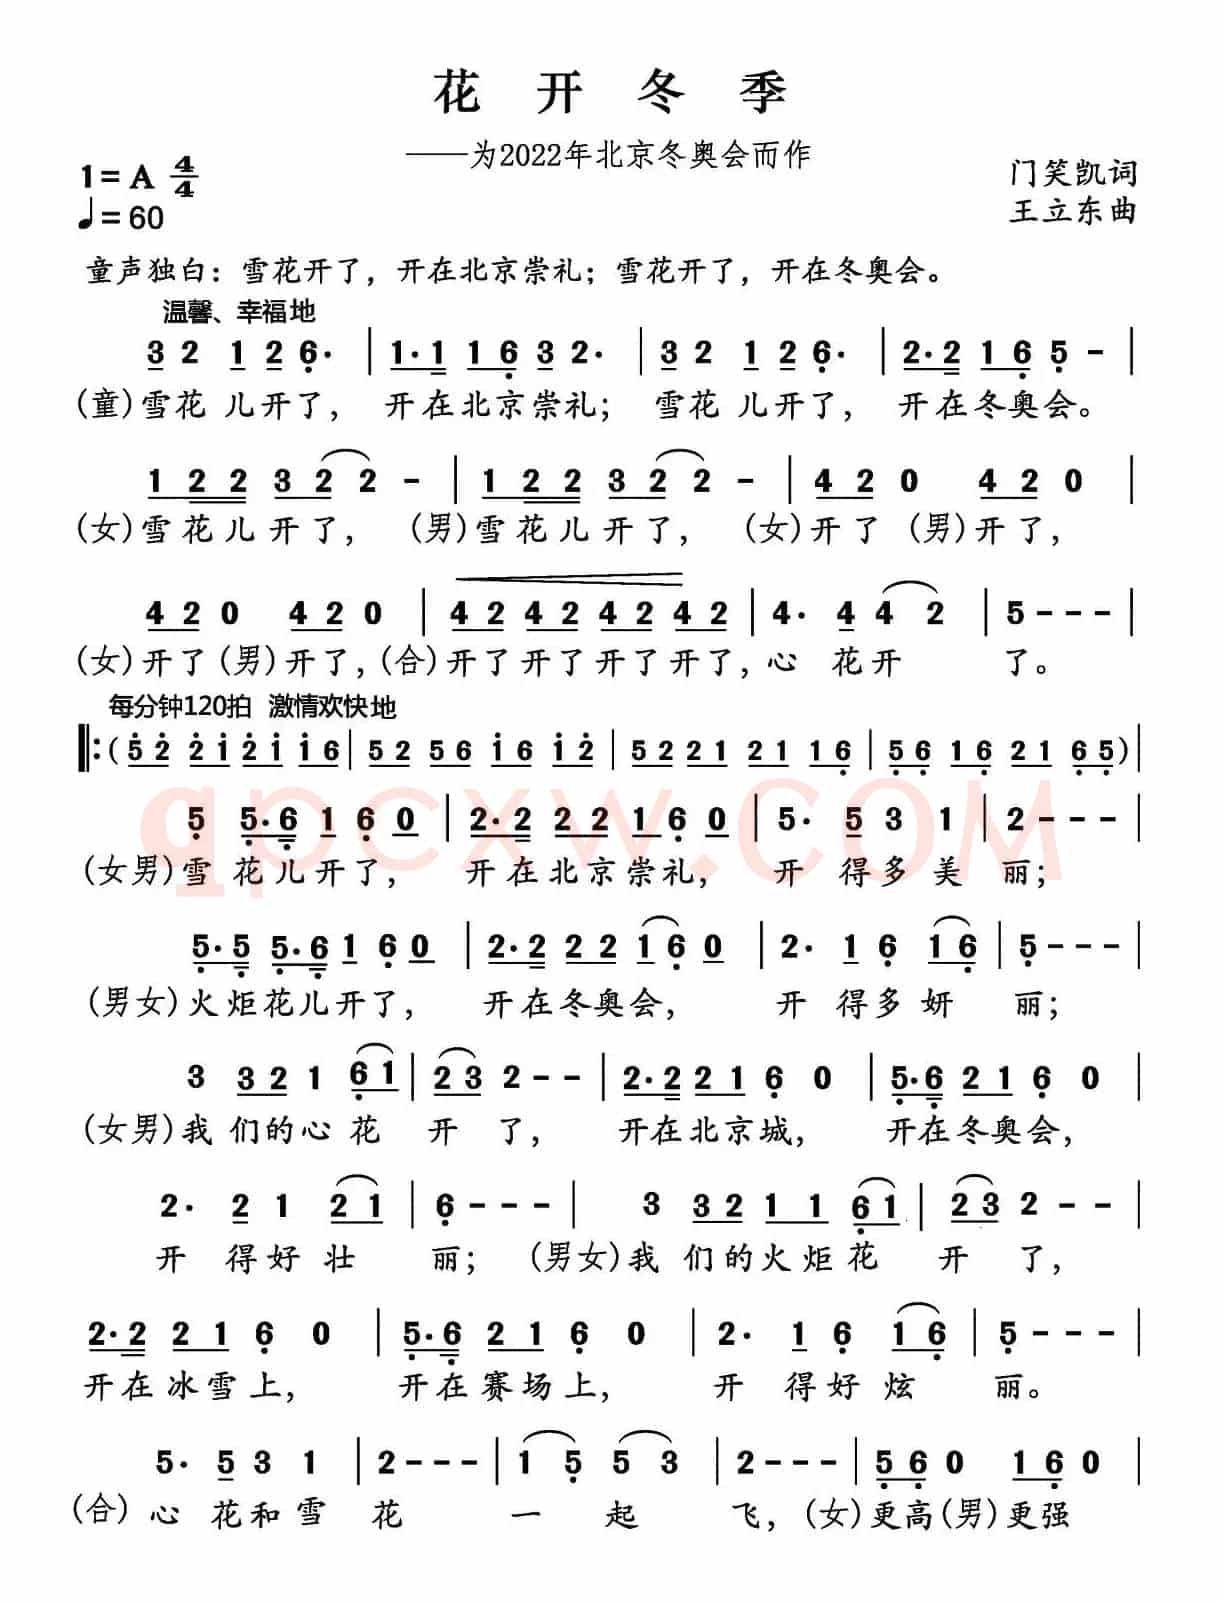 花开冬季
——为2022年北京冬奥会而作
1=A 4/4
♩=60
门笑凯词
王立东曲
童声独白：雪花开了，开在北京崇礼；雪花开了，开在冬奥会。
温馨、幸福地
3 2 1 2 6· | 1·1 1 6 3 2· | 3 2 1 2 6· | 2·2 1 6 5 - |
(童)雪花儿开了，开在北京崇礼；雪花儿开了，开在冬奥会。
1 2 2 3 2 2 - | 1 2 2 3 2 2 - | 4 2 0 4 2 0 |
(女)雪花儿开了，(男)雪花儿开了，(女)开了(男)开了，
4 2 0 4 2 0 | 4 2 4 2 4 2 4 2 | 4· 4 4 2 | 5 - - - |
(女)开了(男)开了，(合)开了开了开了开了，心花开了。
每分钟120拍 激情欢快地
‖:(5 2 2 1 2 1 1 6 | 5 2 5 6 1 6 1 2 | 5 2 2 1 2 1 1 6 | 5 6 1 6 2 1 6 5) |
5 5·6 1 6 0 | 2·2 2 2 1 6 0 | 5· 5 3 1 | 2 - - - |
(女男)雪花儿开了，开在北京崇礼，开得多美丽；
5·5 5·6 1 6 0 | 2·2 2 2 1 6 0 | 2· 1 6 1 6 | 5 - - - |
(男女)火炬花儿开了，开在冬奥会，开得多妍丽；
3 3 2 1 6 1 | 2 3 2 - - | 2·2 2 1 6 0 | 5·6 2 1 6 0 |
(女男)我们的心花开了，开在北京城，开在冬奥会，
2· 2 1 2 1 | 6 - - - | 3 3 2 1 1 6 1 | 2 3 2 - - |
开得好壮丽；(男女)我们的火炬花开了，
2·2 2 1 6 0 | 5·6 2 1 6 0 | 2· 1 6 1 6 | 5 - - - |
开在冰雪上，开在赛场上，开得好炫丽。
5· 5 3 1 | 2 - - - | 1 5 5 3 | 2 - - - | 5 6 0 1 6 0 |
(合)心花和雪花一起飞，(女)更高(男)更强
qpcxw.COM